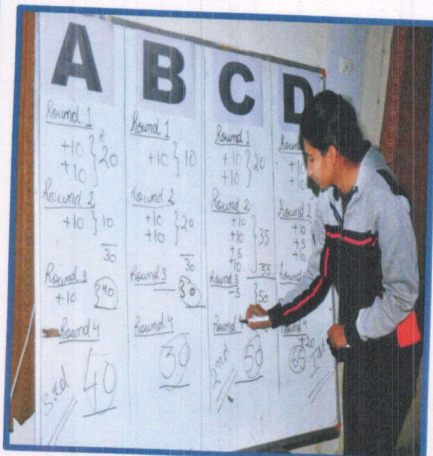 A
Round 1
+10
+10 } 20
Round 2
+10 } 10
30
Round 3
+10 } 40
Round 4
40
3rd
B
Round 1
+10 } 10
Round 2
+10
+10 } 20
30
Round 3
30
Round 4
30
C
Round 1
+10
+10 } 20
Round 2
+10
+10
+5
+10 } 35
55
Round 3
-5 } 50
Round 4
50
2nd
D
Round
+10
+10
Round 2
+10
+10
+5
+10
Round
Round 4
65
+20
1st